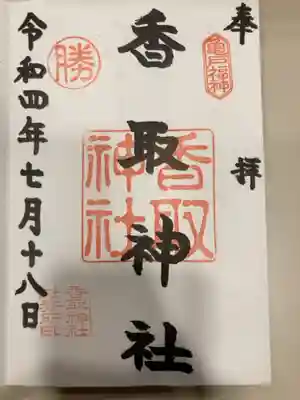 奉拝
亀戸福神
香取神社
香取神社
勝
令和四年七月十八日